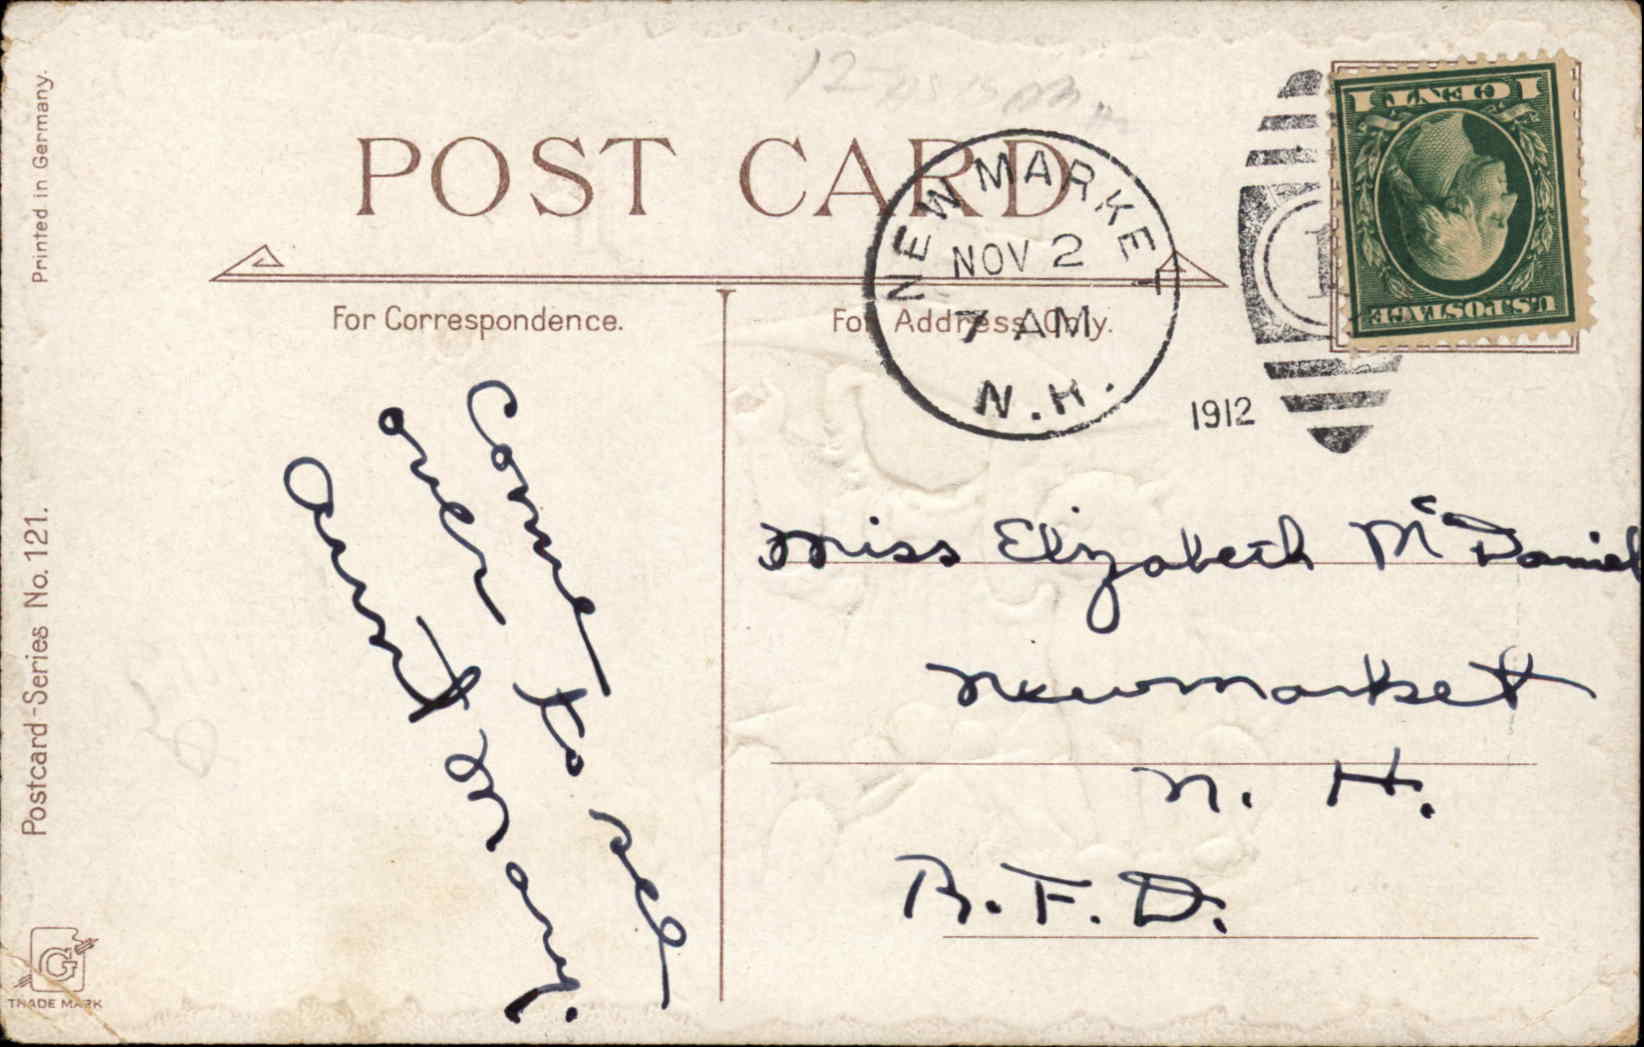 Printed in Germany.
Postcard-Series No. 121.
TRADE MARK
G
POST CARD
For Correspondence.
For Address Only.
NEWMARKET
NOV 2
7 AM
N.H.
1912
1
1 CENT 1
U.S. POSTAGE
12
Come to see
over
Aunt Mary.
Miss Elizabeth McDaniel
Newmarket
N. H.
R. F. D.